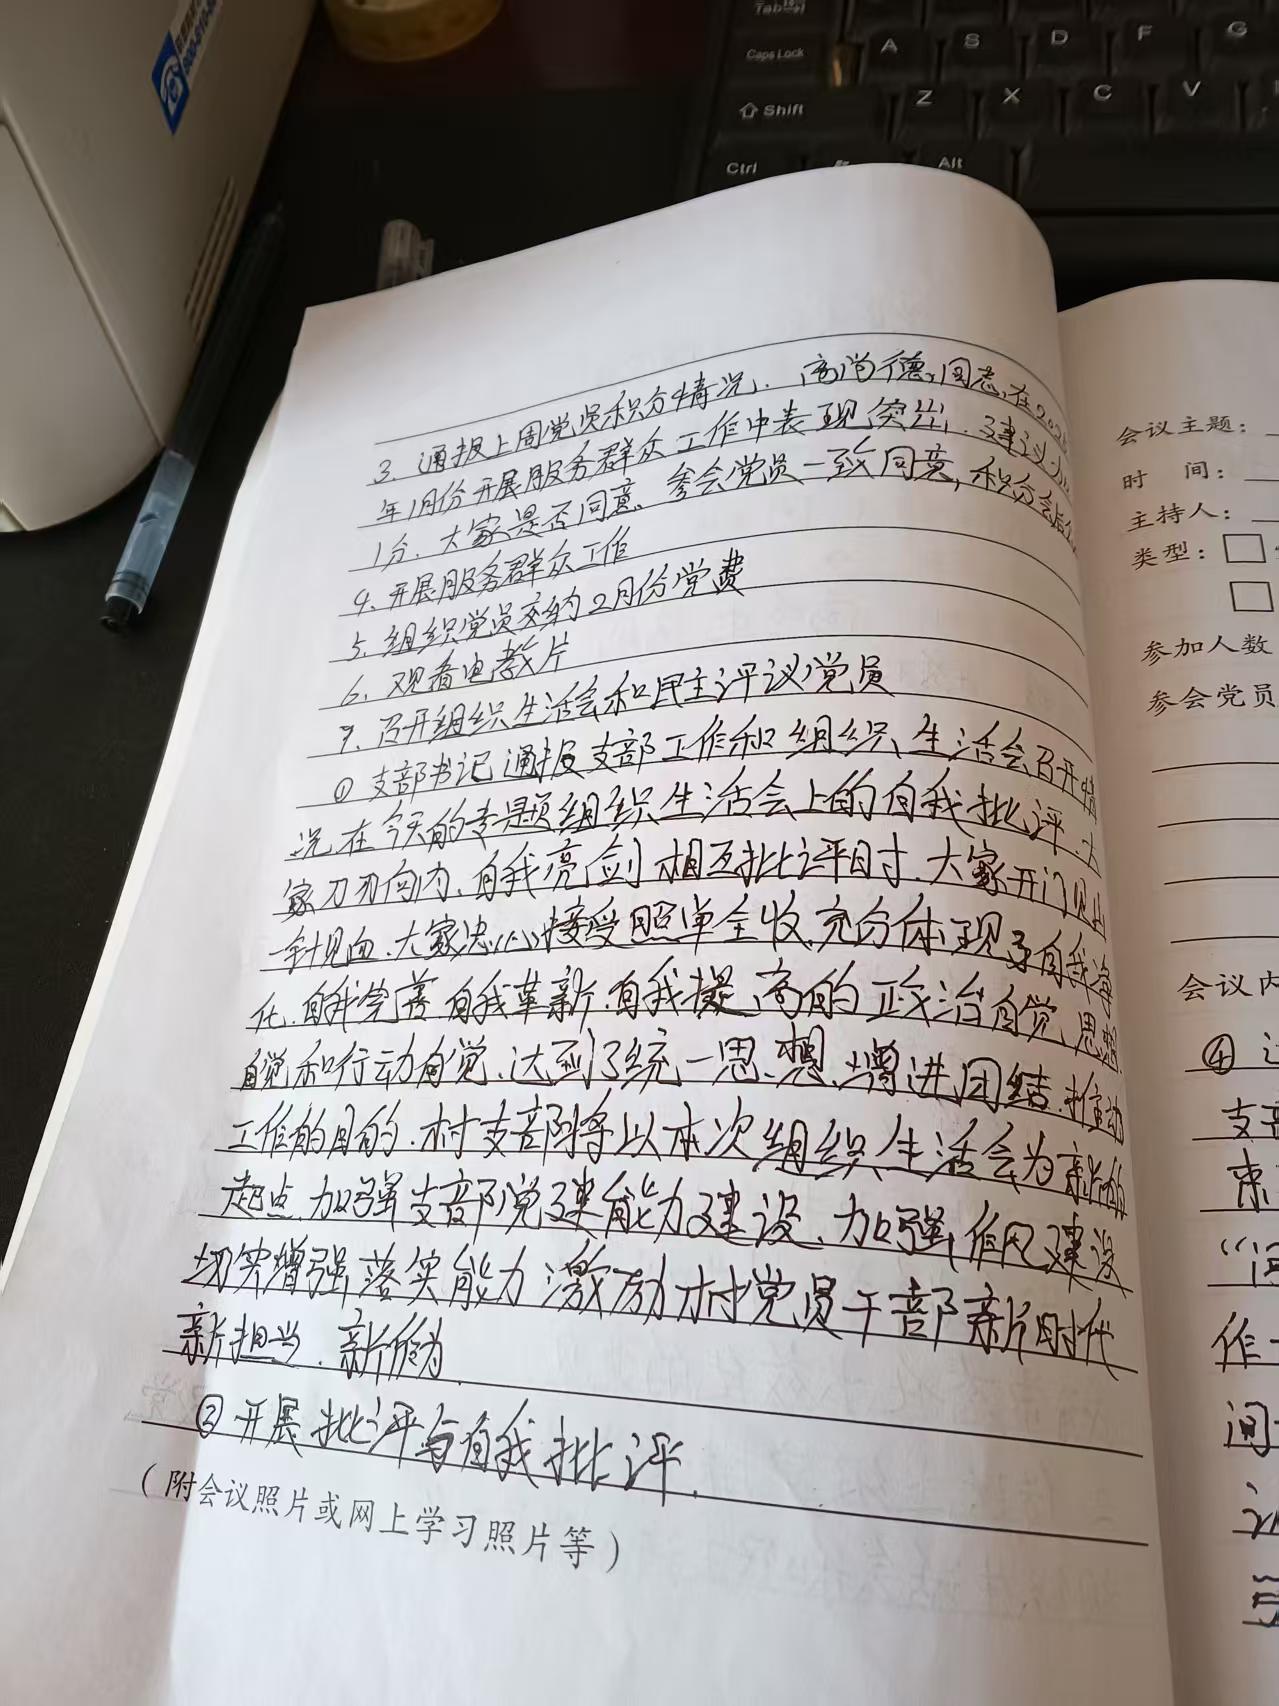 Tab
Caps Lock
A S D F G
Shift
Z X C V
Ctrl
Alt
3、通报上周党员积分情况. 高尚德同志,在202
年1月份开展服务群众工作中表现突出. 建议加
1分. 大家是否同意. 参会党员一致同意, 积分会后
4、开展服务群众工作
5、组织党员交纳2月份党费
6、观看电教片
7、召开组织生活会和民主评议党员
① 支部书记通报支部工作和组织生活会召开情
况.在今天的专题组织生活会上的自我批评.大
家刀刃向内、自我亮剑 相互批评时.大家开门见山
一针见血.大家忠心接受照单全收.充分体现了自我净
化.自我完善 自我革新.自我提高的政治自觉 思想
自觉和行动自觉.达到了统一思想、增进团结.推动
工作的目的.村支部将以本次组织生活会为新的
起点.加强支部党建能力建设、加强作风建设
切实增强落实能力 激励村党员干部新时代
新担当.新作为.
③ 开展批评与自我批评.
(附会议照片或网上学习照片等)
会议主题:
时 间:
主持人:
类型:
参加人数
参会党员
会议内
④
支部
作
间